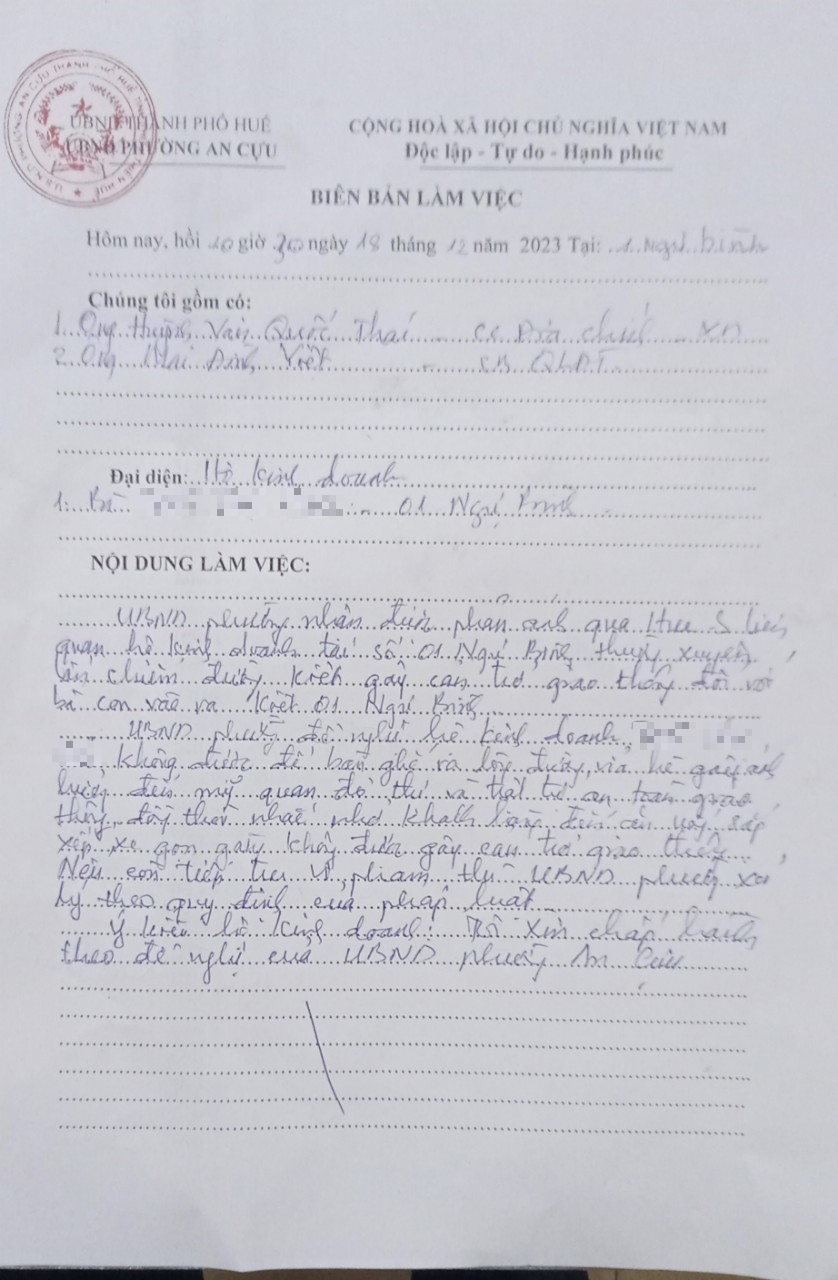 UBND THÀNH PHỐ HUẾ
UBND PHƯỜNG AN CỰU
CỘNG HOÀ XÃ HỘI CHỦ NGHĨA VIỆT NAM
Độc lập - Tự do - Hạnh phúc
BIÊN BẢN LÀM VIỆC
Hôm nay, hồi 10 giờ 30 ngày 18 tháng 12 năm 2023 Tại: 1 Ngự bình
Chúng tôi gồm có:
1. Ông Huỳnh Văn Quốc Thái CC Địa chính XD
2. Ông Mai Đình Việt CB QLĐT
Đại diện: Hộ kinh doanh
1. Bà 01 Ngự Bình
NỘI DUNG LÀM VIỆC:
UBND phường nhận được phản ánh qua Hue S liên
quan hộ kinh doanh tại số 01 Ngự Bình thường xuyên
lấn chiếm đường kiệt gây cản trở giao thông đối với
bà con vào ra kiệt 01 Ngự Bình
UBND phường đề nghị hộ kinh doanh
không được để bàn ghế ra lòng đường, vỉa hè gây ảnh
hưởng đến mỹ quan đô thị và trật tự an toàn giao
thông, đồng thời nhắc nhở khách hàng đến ăn uống sắp
xếp xe gọn gàng không được gây cản trở giao thông
Nếu còn tiếp tục vi phạm thì UBND phường xử
lý theo quy định của pháp luật
Ý kiến hộ kinh doanh: Tôi xin chấp hành
theo đề nghị của UBND phường An Cựu